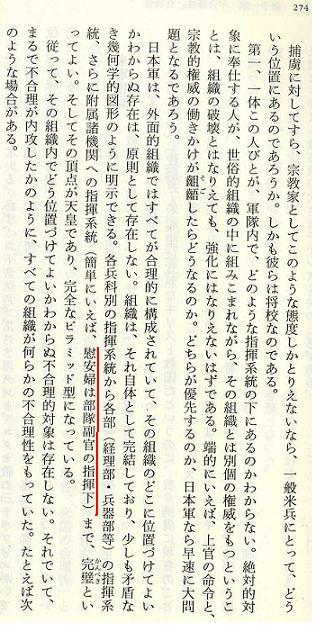 274
捕虜に対してすら、宗教家としてこのような態度しかとりえないなら、一般米兵にとって、どう
いう位置にあるのであろうか。しかも彼らは将校なのである。
第一、一体この人びとが、軍隊内で、どのような指揮系統の下にあるのかわからない。絶対的対
象に奉仕する人が、世俗的組織の中に組みこまれながら、その組織とは別個の権威をもつというこ
とは、組織の破壊とはなりえても、強化にはなりえないはずである。端的にいえば、上官の命令と、
宗教的権威の働きかけが齟齬したらどうなるのか。どちらが優先するのか、日本軍なら早速に大問
題となるであろう。
日本軍は、外面的組織ではすべてが合理的に構成されていて、その組織のどこに位置づけてよい
かわからぬ存在は、原則として存在しない。組織は、それ自体として完結しており、少しも矛盾な
き幾何学的図形のように明示できる。各兵科別の指揮系統から各部（経理部・兵器部等）の指揮系
統、さらに附属諸機関への指揮系統（簡単にいえば、慰安婦は部隊副官の指揮下）まで、完璧とい
ってよい。そしてその頂点が天皇であり、完全なピラミッド型になっている。
従って、その組織内でどう位置づけてよいかわからぬ不合理的対象は存在しない。それでいて、
まるで不合理が内攻したかのように、すべての組織が何らかの不合理性をもっていた。たとえば次
のような場合がある。